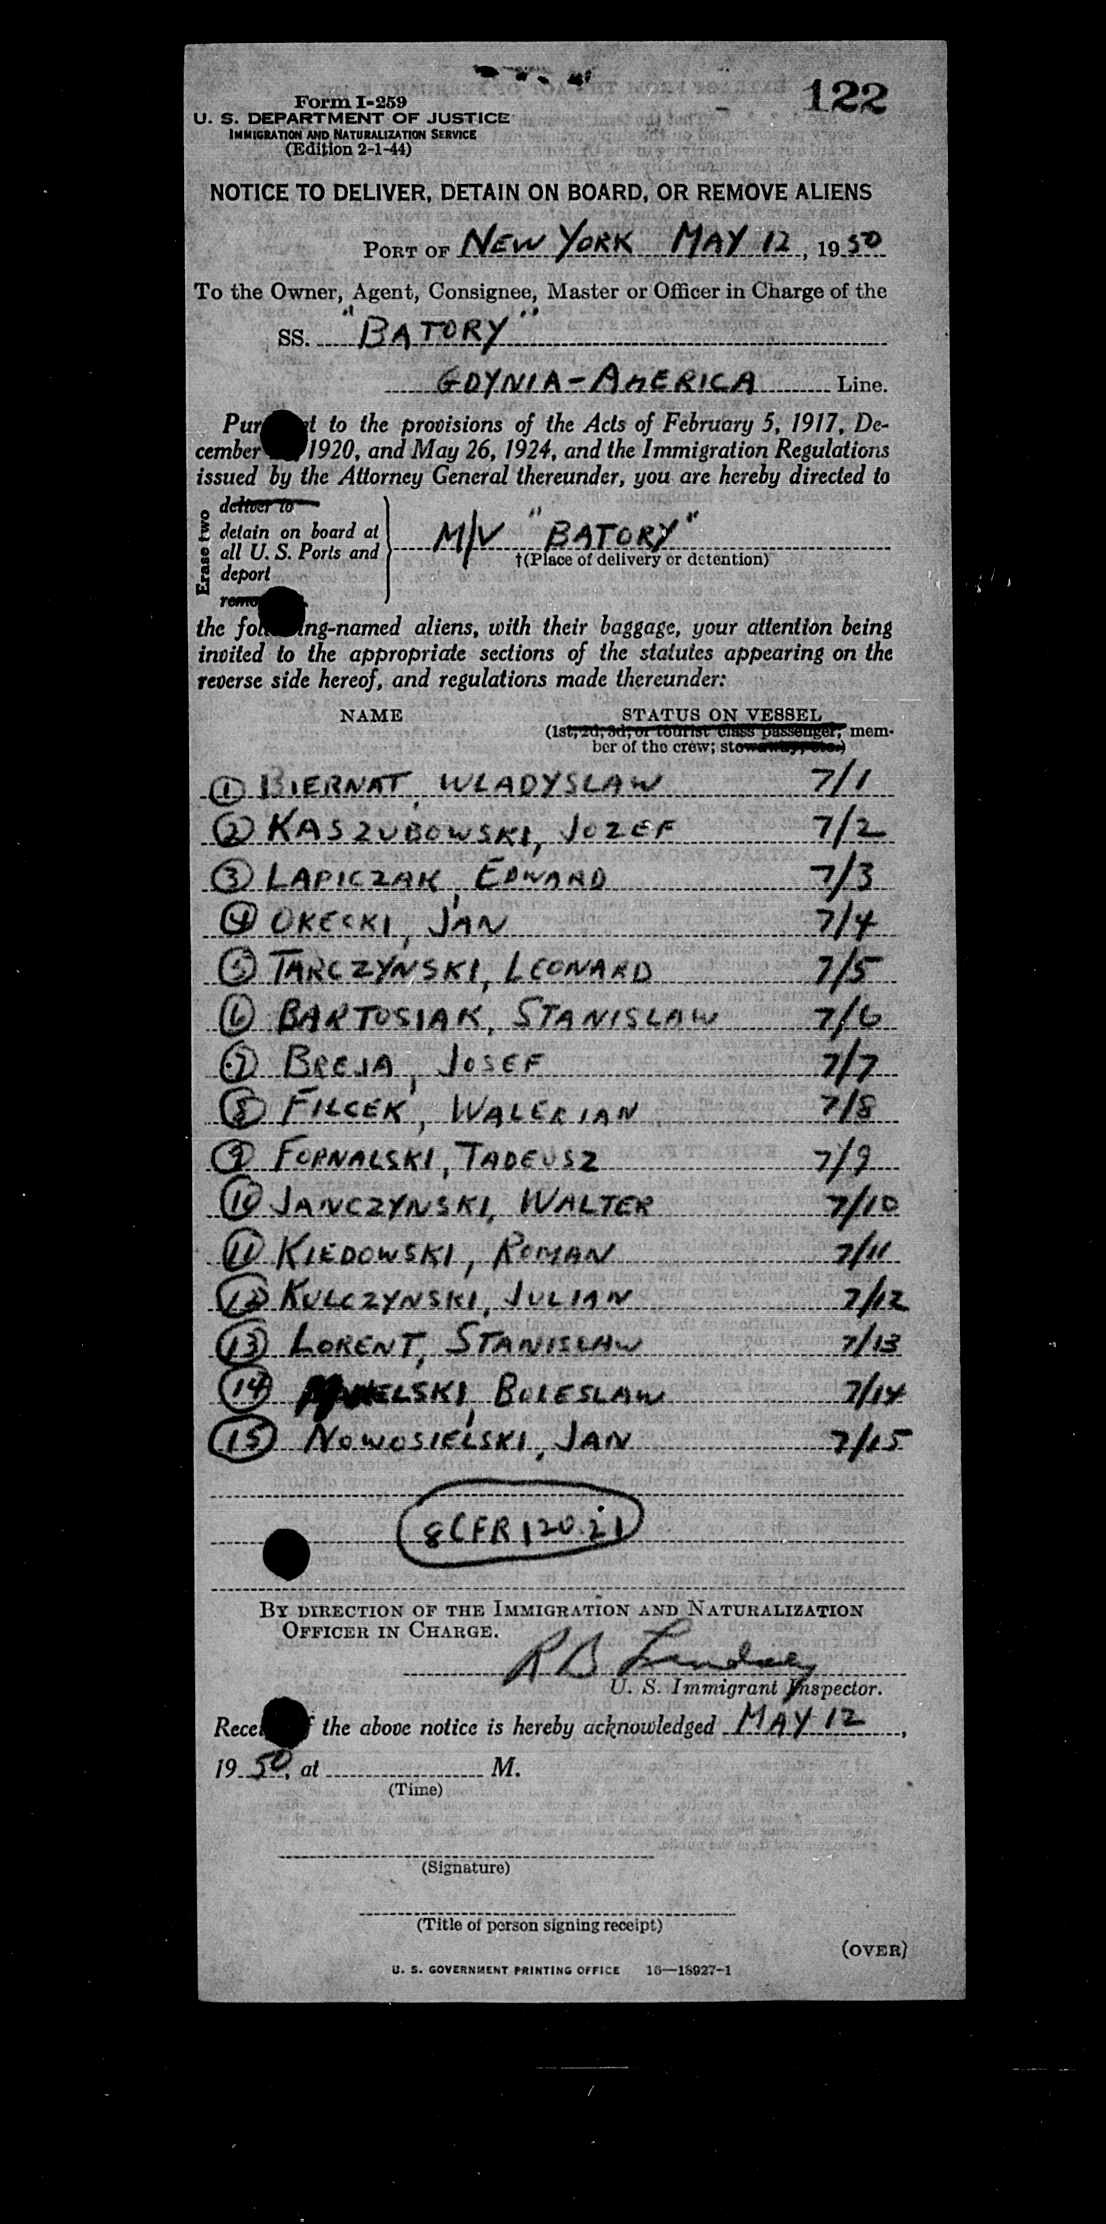 122
Form I-259
U. S. DEPARTMENT OF JUSTICE
IMMIGRATION AND NATURALIZATION SERVICE
(Edition 2-1-44)
NOTICE TO DELIVER, DETAIN ON BOARD, OR REMOVE ALIENS
PORT OF NEW YORK MAY 12, 1950
To the Owner, Agent, Consignee, Master or Officer in Charge of the
SS. "BATORY"
GDYNIA-AMERICA Line.
Pur t to the provisions of the Acts of February 5, 1917, De-
cember 1920, and May 26, 1924, and the Immigration Regulations
issued by the Attorney General thereunder, you are hereby directed to
Erase two
deliver to
detain on board at
all U. S. Ports and
deport
M/V "BATORY"
†(Place of delivery or detention)
the fol ng-named aliens, with their baggage, your attention being
invited to the appropriate sections of the statutes appearing on the
reverse side hereof, and regulations made thereunder:
NAME STATUS ON VESSEL
(1st, 2d, 3d, or tourist class passenger, mem-
ber of the crew; stowaway, etc.)
1 BIERNAT, WLADYSLAW 7/1
2 KASZUBOWSKI, JOZEF 7/2
3 LAPICZAK, EDWARD 7/3
4 OKECKI, JAN 7/4
5 TARCZYNSKI, LEONARD 7/5
6 BARTOSIAK, STANISLAW 7/6
7 BREJA, JOSEF 7/7
8 FILCEK, WALERIAN 7/8
9 FORNALSKI, TADEUSZ 7/9
10 JANCZYNSKI, WALTER 7/10
11 KIEDOWSKI, ROMAN 7/11
12 KULCZYNSKI, JULIAN 7/12
13 LORENT, STANISLAW 7/13
14 BOLESLAW 7/14
15 NOWOSIELSKI, JAN 7/15
8 CFR 120.21
BY DIRECTION OF THE IMMIGRATION AND NATURALIZATION
OFFICER IN CHARGE.
R B Lindsay
U. S. Immigrant Inspector.
Rece f the above notice is hereby acknowledged MAY 12,
1950, at M.
(Time)
(Signature)
(Title of person signing receipt)
(OVER)
U. S. GOVERNMENT PRINTING OFFICE 16—18927-1